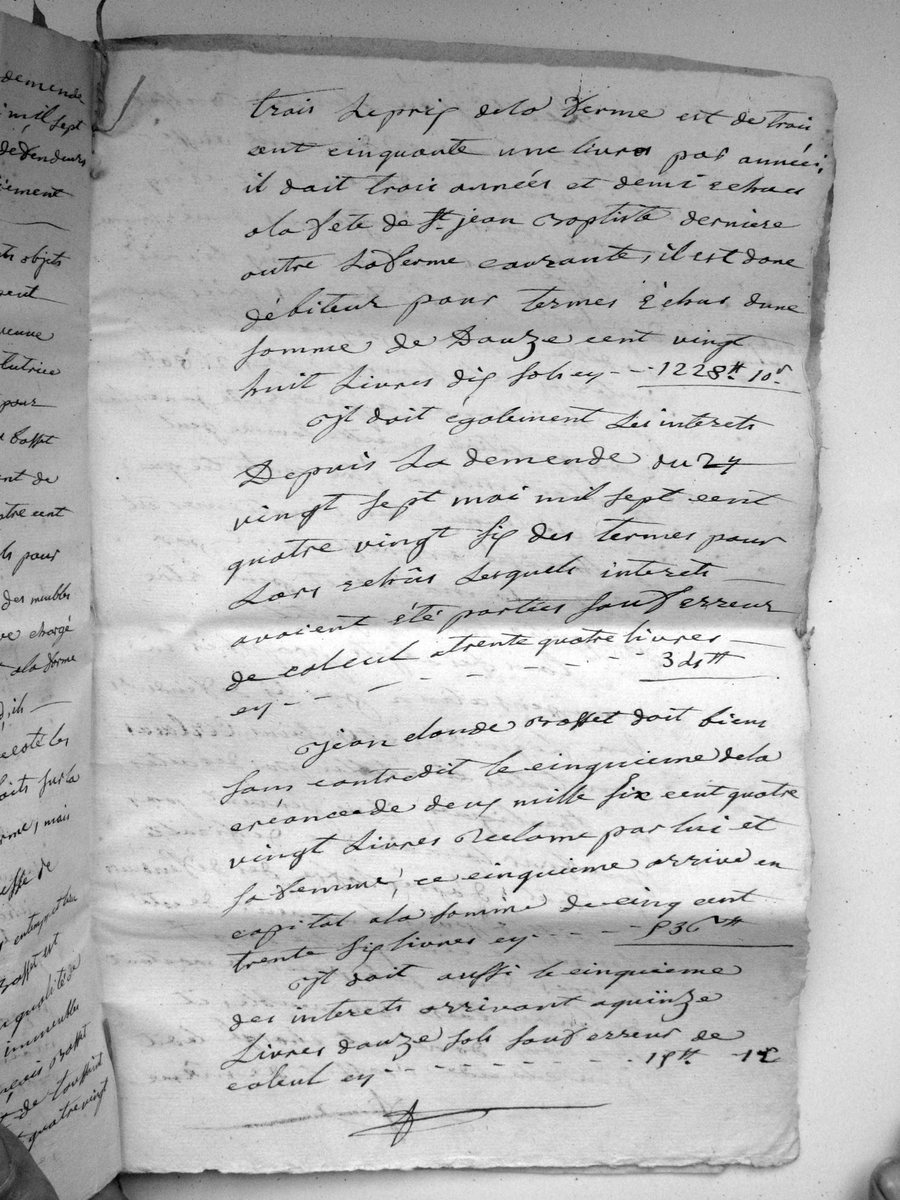 demende
mil sept
deffendeurs
ment
objets
veuve
tutrice
pour
Cosset
ent de
tre cent
pour
des meubles
ve chargé
a la ferme
ils
les
faits sur la
rme, mais
esse de
osset est
qualité de
immeubles
osset
de Toussaint
quatre vingt
trois Le prix de la ferme est de trois
cent cinquante une livres par années,
il doit trois années et demi echues
a la fete de St. jean Baptiste derniere
outre La ferme courante, il est donc
débiteur pour termes échus dune
somme de Douze cent vingt
huit Livres dix sols cy - - 1228tt. 10s
jl doit également Les interets
Depuis La demende du 27
vingt sept mai mil sept cent
quatre vingt six des termes pour
Lors echus Lesquels interets
avaient été portées sauf erreur
de calcul a trente quatre livres
cy - - - - - - - - - 34tt
jean claude Cosset doit biens
sans contredit le cinquieme de la
créance de deux mille six cent quatre
vingt Livres Reclame par lui et
sa femme, ce cinquieme arrive en
capital a la somme de cinq cent
trente six livres cy - - - - - 536tt
jl doit aussi le cinquieme
des interets arrivant a quinze
Livres douze sols sauf erreur de
calcul cy - - - - - - - - - 15tt. 12